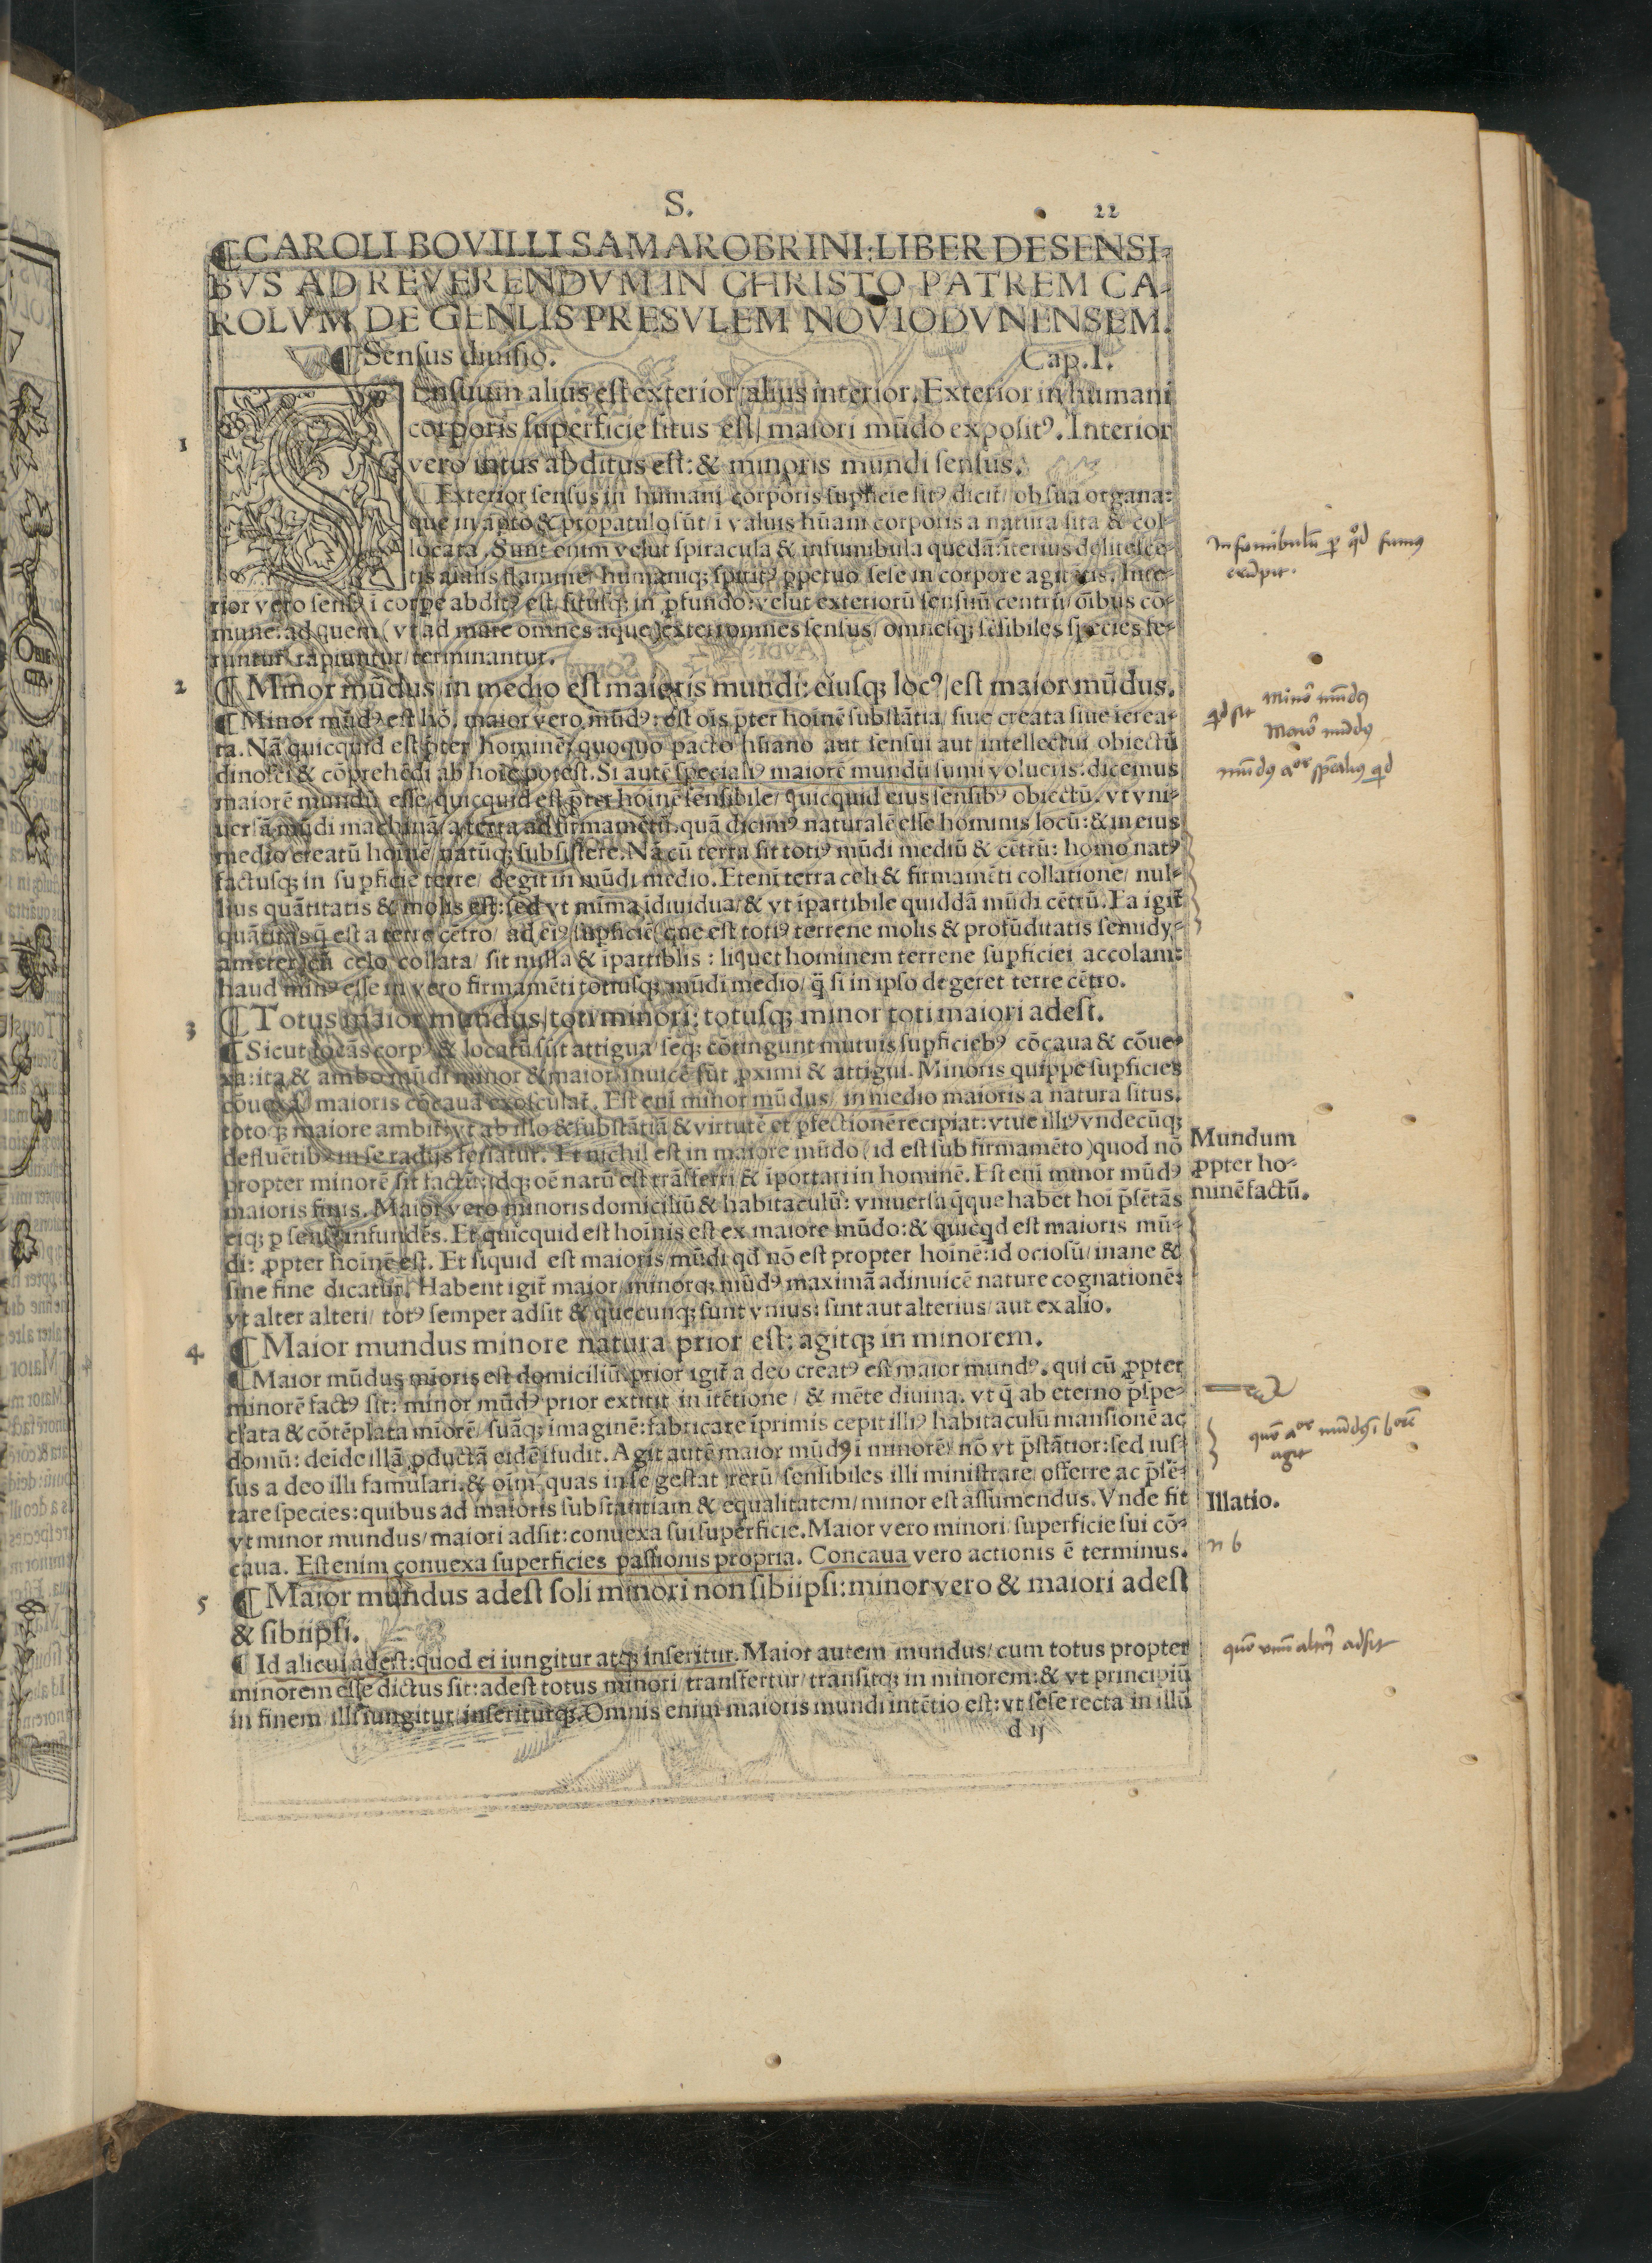 S.
22
¶CAROLI BOVILLI SAMAROBRINI: LIBER DE SENSI-
BVS AD REVERENDVM IN CHRISTO PATREM CA-
ROLVM DE GENLIS PRESVLEM NOVIODVNENSEM.
¶Sensus diuisio. Cap.I.
1
SEnsuum alius est exterior/alius interior. Exterior in humani
corporis superficie situs est/ maiori mūdo exposit⁹. Interior
vero intus abditus est: & minoris mundi sensus.
¶Exterior sensus in humani corporis supficie sit⁹ dicit̄/ ob sua organa:
que in apto & propatulo sūt/ i valuis hūani corporis a natura sita & col-
locata. Sunt enim velut spiracula & infumibula quedā: īterius delitescē-
tis aīalis flamme/ humaniq; spirit⁹ ꝑpetuo sese in corpore agitātis. Inte-
rior vero sens⁹ i corpe abdit⁹ est/ situsq; in ꝓfundo: velut exteriorū sensuū centrū/ oībus cō-
mune: ad quem (vt ad mare omnes aque) exteri omnes sensus/ omnesq; sēsibiles species fe-
runtur/ rapiuntur/ terminantur.
2
¶Minor mūdus/ in medio est maioris mundi: eiusq; loc⁹/ est maior mūdus.
¶Minor mūd⁹ est hō. maior vero mūd⁹: est oīs p̄ter hoīnē substātia/ siue creata siue icrea-
ta. Nā quicquid est p̄ter hominē/ quoquo pacto hūano aut sensui aut intellectui obiectū
dinosci & cōprehēdi ab hoīe potest. Si autē speciali⁹ maiorē mundū sumi volueris: dicemus
maiorē mundū esse/ quicquid est p̄ter hoīnē sensibile/ quicquid eius sensib⁹ obiectū. vt vni-
uersā mūdi machinā/ a terra ad firmamētū. quā dicim⁹ naturalē esse hominis locū: & in eius
medio creatū hoīnē/ natūq; subsistere. Nā cū terra sit toti⁹ mūdi mediū & cētrū: homo nat⁹
factusq; in supficie terre/ degit in mūdi medio. Etenī terra celi & firmamēti collatione/ nul-
lius quātitatis & molis est: sed vt mīma idiuidua/ & vt ipartibile quiddā mūdi cētrū. Ea igit̄
quātitas q̄ est a terre cētro/ ad ei⁹ supficiē (que est toti⁹ terrene molis & profūditatis semidy-
ameter) cū celo collata/ sit nulla & ipartiblis: liquet hominem terrene supficiei accolam:
haud min⁹ esse in vero firmamēti totiusq; mūdi medio/ q̄ si in ipso degeret terre cētro.
3
¶Totus maior mundus/ toti minori: totusq; minor toti maiori adest.
¶Sicut locās corp⁹ & locatū sūt attigua/ seq; cōtingunt mutuis supficieb⁹ cōcaua & cōue-
xa: ita & ambo mūdi minor & maior/ inuicē sūt ꝓximi & attigui. Minoris quippe supficies
cōuexa/ maioris cōcauā exosculat̄. Est enī minor mūdus/ in medio maioris a natura situs.
toto q; maiore ambit̄: vt ab illo & substātiā & virtutē et pfectionē recipiat: vtue illi⁹ vndecūq;
defluētib⁹ in se radijs feriatur. Et nichil est in maiore mūdo (id est sub firmamēto) quod nō
propter minorē sit factū: idq; oē natū est trāsferri & iportari in hominē. Est enī minor mūd⁹
maioris finis. Maior vero minoris domiciliū & habitaculū: vniuersa q̄que habet hoī p̄sētās
eiq; p sens⁹ infundēs. Et quicquid est hoīnis est ex maiore mūdo: & quicqd est maioris mū-
di: ꝓpter hoīnē est. Et siquid est maioris mūdi qd nō est propter hoīnē: id ociosū/ inane &
sine fine dicatur. Habent igit̄ maior/ minorq; mūd⁹ maximā adinuicē nature cognationē:
vt alter alteri/ tot⁹ semper adsit & quecunq; sunt vnius: sint aut alterius/ aut ex alio.
4
¶Maior mundus minore natura prior est: agitq; in minorem.
¶Maior mūdus mioris est domiciliū. prior igit̄ a deo creat⁹ est maior mund⁹. qui cū ꝓpter
minorē fact⁹ sit: minor mūd⁹ prior extitit in itētione/ & mēte diuina. vt q̄ ab eterno p̄spe-
ctata & cōtēplata miorē/ suāq; imaginē: fabricare īprimis cepit illi⁹ habitaculū mansionē ac
domū: deīde illā ꝓductā eidē ifudit. Agit autē maior mūd⁹ i minorē/ nō vt p̄stātior: sed ius-
sus a deo illi famulari. & oīm quas in se gestat rerū/ sensibiles illi ministrare/ offerre ac p̄sē-
tare species: quibus ad maioris substantiam & equalitatem/ minor est assumendus. Vnde fit
vt minor mundus/ maiori adsit: conuexa sui superficie. Maior vero minori/ superficie sui cō-
caua. Est enim conuexa superficies passionis propria. Concaua vero actionis ē terminus.
5
¶Maior mundus adest soli minori non sibiipsi: minor vero & maiori adest
& sibiipsi.
¶Id alicui adest: quod ei iungitur atq; inseritur. Maior autem mundus/ cum totus propter
minorem esse dictus sit: adest totus minori/ transfertur/ transitq; in minorem: & vt principiū
in finem illi iungitur/ inseriturq;. Omnis enim maioris mundi intētio est: vt sese recta in illū
d ij
Infumibulū
fumus
erūpit.
Minor mūdus
qd sit
Maior mūdus
Mundum
ꝓpter ho-
minē factū.
agit
Illatio.
n b
adsit
OBIE-
CTA.